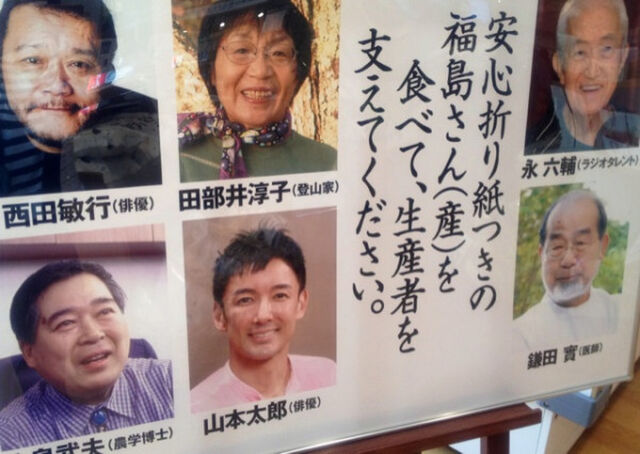 安心折り紙つきの
福島さん(産)を
食べて、生産者を
支えてください。
西田敏行(俳優)
田部井淳子(登山家)
永 六輔(ラジオタレント)
武夫(農学博士)
山本太郎(俳優)
鎌田 實(医師)